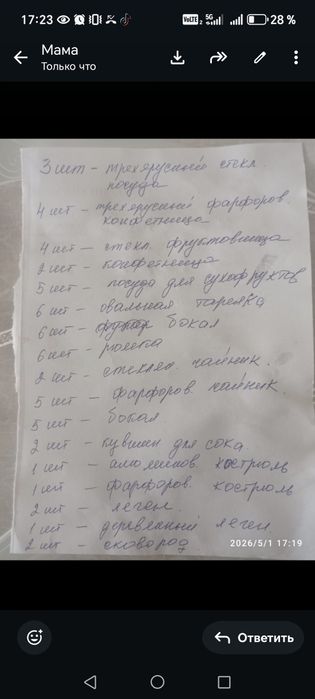 17:23
VoLTE 2 5G 28 %
Мама
Только что
3 шт – трехярусный стекл.
посуда
4 шт – трехярусный фарфоров.
конфетница
4 шт – стекл. фруктовница
2 шт – конфетница
5 шт – посуда для сухофруктов
6 шт – овальная тарелка
6 шт – бокал
6 шт – розета
2 шт – стеклян. чайник.
5 шт – фарфоров. чайник.
5 шт – бокал
2 шт – кувшин для сока
1 шт – алюминов. кострюль
1 шт – фарфоров. кострюль
2 шт – леген.
1 шт – деревянный леген
2 шт – сковород.
2026/5/1 17:19
Ответить